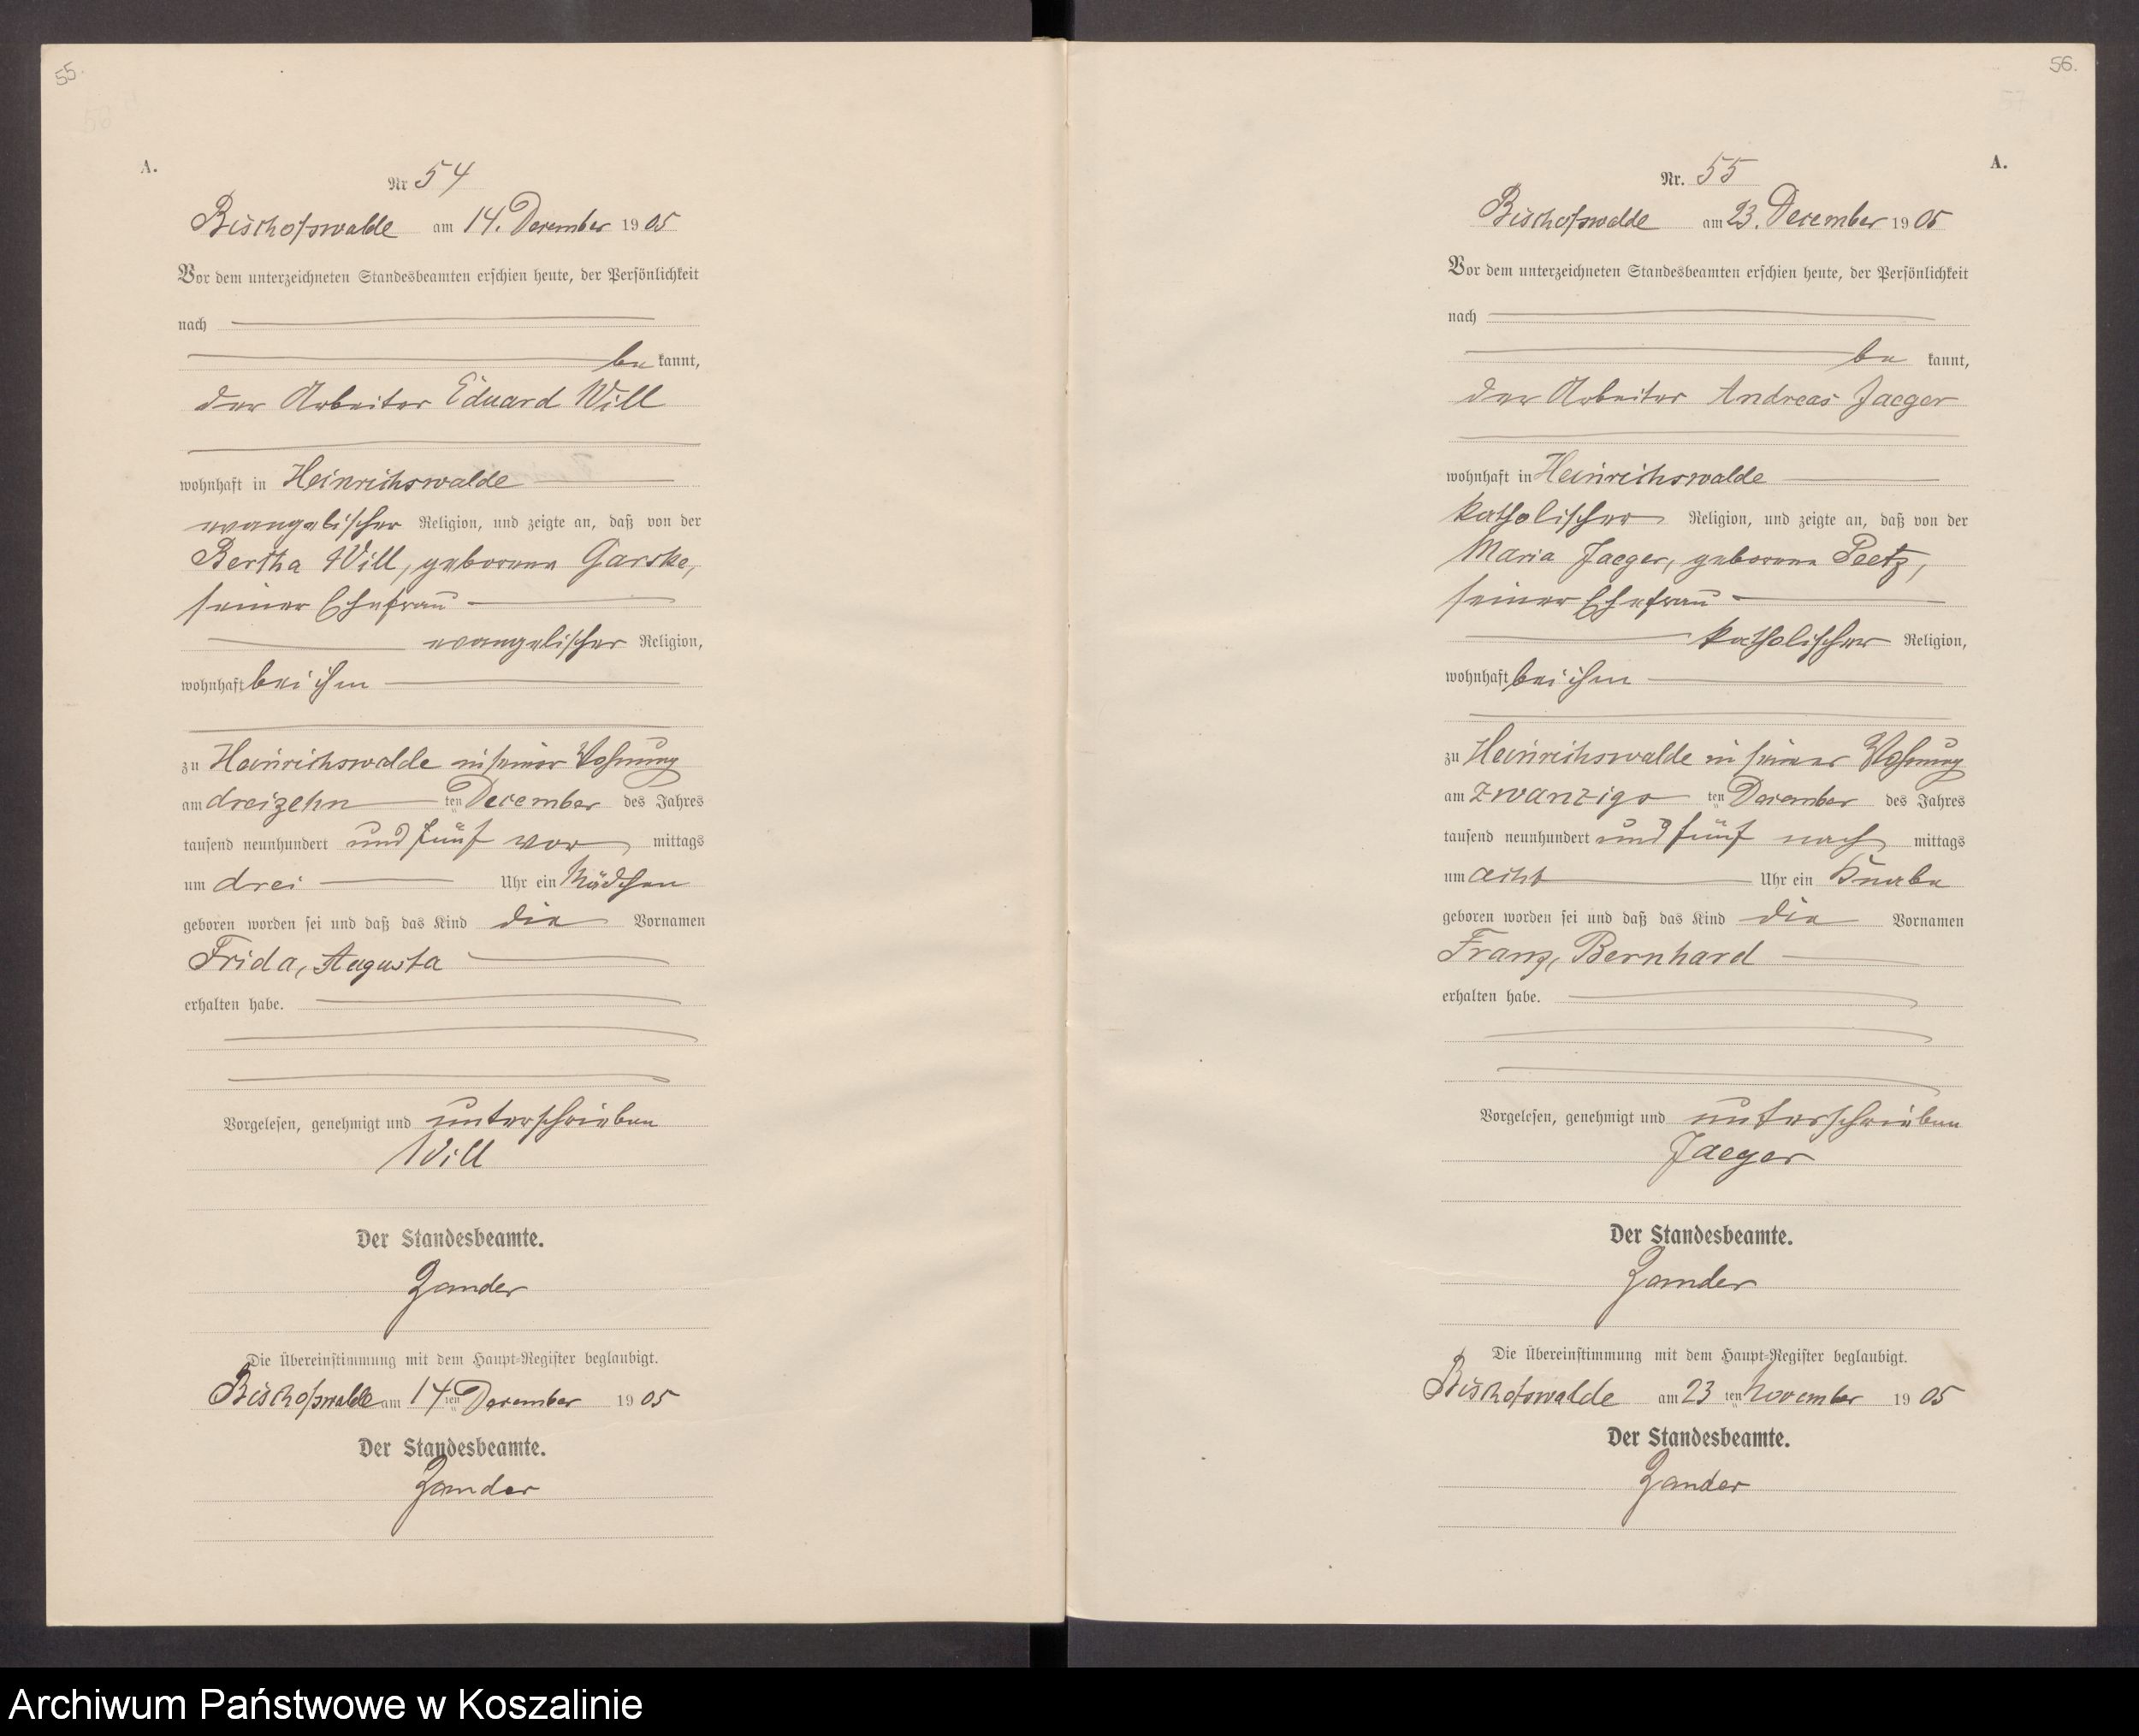 55.
A.
Nr 54
Bischofswalde am 14. December 1905
Vor dem unterzeichneten Standesbeamten erschien heute, der Persönlichkeit
nach
be kannt,
der Arbeiter Eduard Will
wohnhaft in Heinrichswalde
evangelischer Religion, und zeigte an, daß von der
Bertha Will, geborene Garske,
seiner Ehefrau
evangelischer Religion,
wohnhaft bei ihm
zu Heinrichswalde in seiner Wohnung
am dreizehn ten December des Jahres
tausend neunhundert und fünf vor mittags
um drei Uhr ein Mädchen
geboren worden sei und daß das Kind die Vornamen
Frida, Augusta
erhalten habe.
Vorgelesen, genehmigt und unterschrieben
Will
Der Standesbeamte.
Zander
Die Übereinstimmung mit dem Haupt-Register beglaubigt.
Bischofswalde am 14 ten December 1905
Der Standesbeamte.
Zander
56.
A.
Nr. 55
Bischofswalde am 23. December 1905
Vor dem unterzeichneten Standesbeamten erschien heute, der Persönlichkeit
nach
be kannt,
der Arbeiter Andreas Jaeger
wohnhaft in Heinrichswalde
katholischer Religion, und zeigte an, daß von der
Maria Jaeger, geborene Peetz,
seiner Ehefrau
katholischer Religion,
wohnhaft bei ihm
zu Heinrichswalde in seiner Wohnung
am zwanzigs ten December des Jahres
tausend neunhundert und fünf nach mittags
um acht Uhr ein Knabe
geboren worden sei und daß das Kind die Vornamen
Franz, Bernhard
erhalten habe.
Vorgelesen, genehmigt und unterschrieben
Jaeger
Der Standesbeamte.
Zander
Die Übereinstimmung mit dem Haupt-Register beglaubigt.
Bischofswalde am 23 ten November 1905
Der Standesbeamte.
Zander
Archiwum Państwowe w Koszalinie